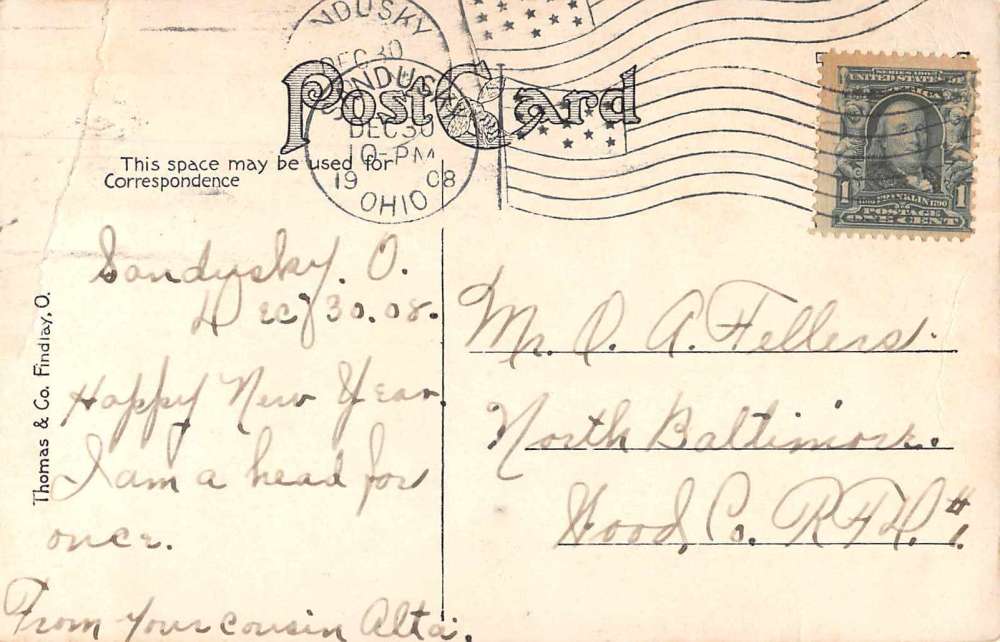 NDUSKY
DEC 30
NDUSKY
DEC 30
10-PM
19 08
OHIO
Post Card
SERIES 1902
UNITED STATES OF
AMERICA
1 FRANKLIN 1790 1
POSTAGE
ONE CENT
This space may be used for
Correspondence
Thomas & Co. Findlay, O.
Sandusky. O.
Dec/30.08.
Happy New Year
I am a head for
once.
From your cousin Alta.
Mr. O. A. Fellers.
North Baltimore.
Wood, Co. R.F.D. #1.